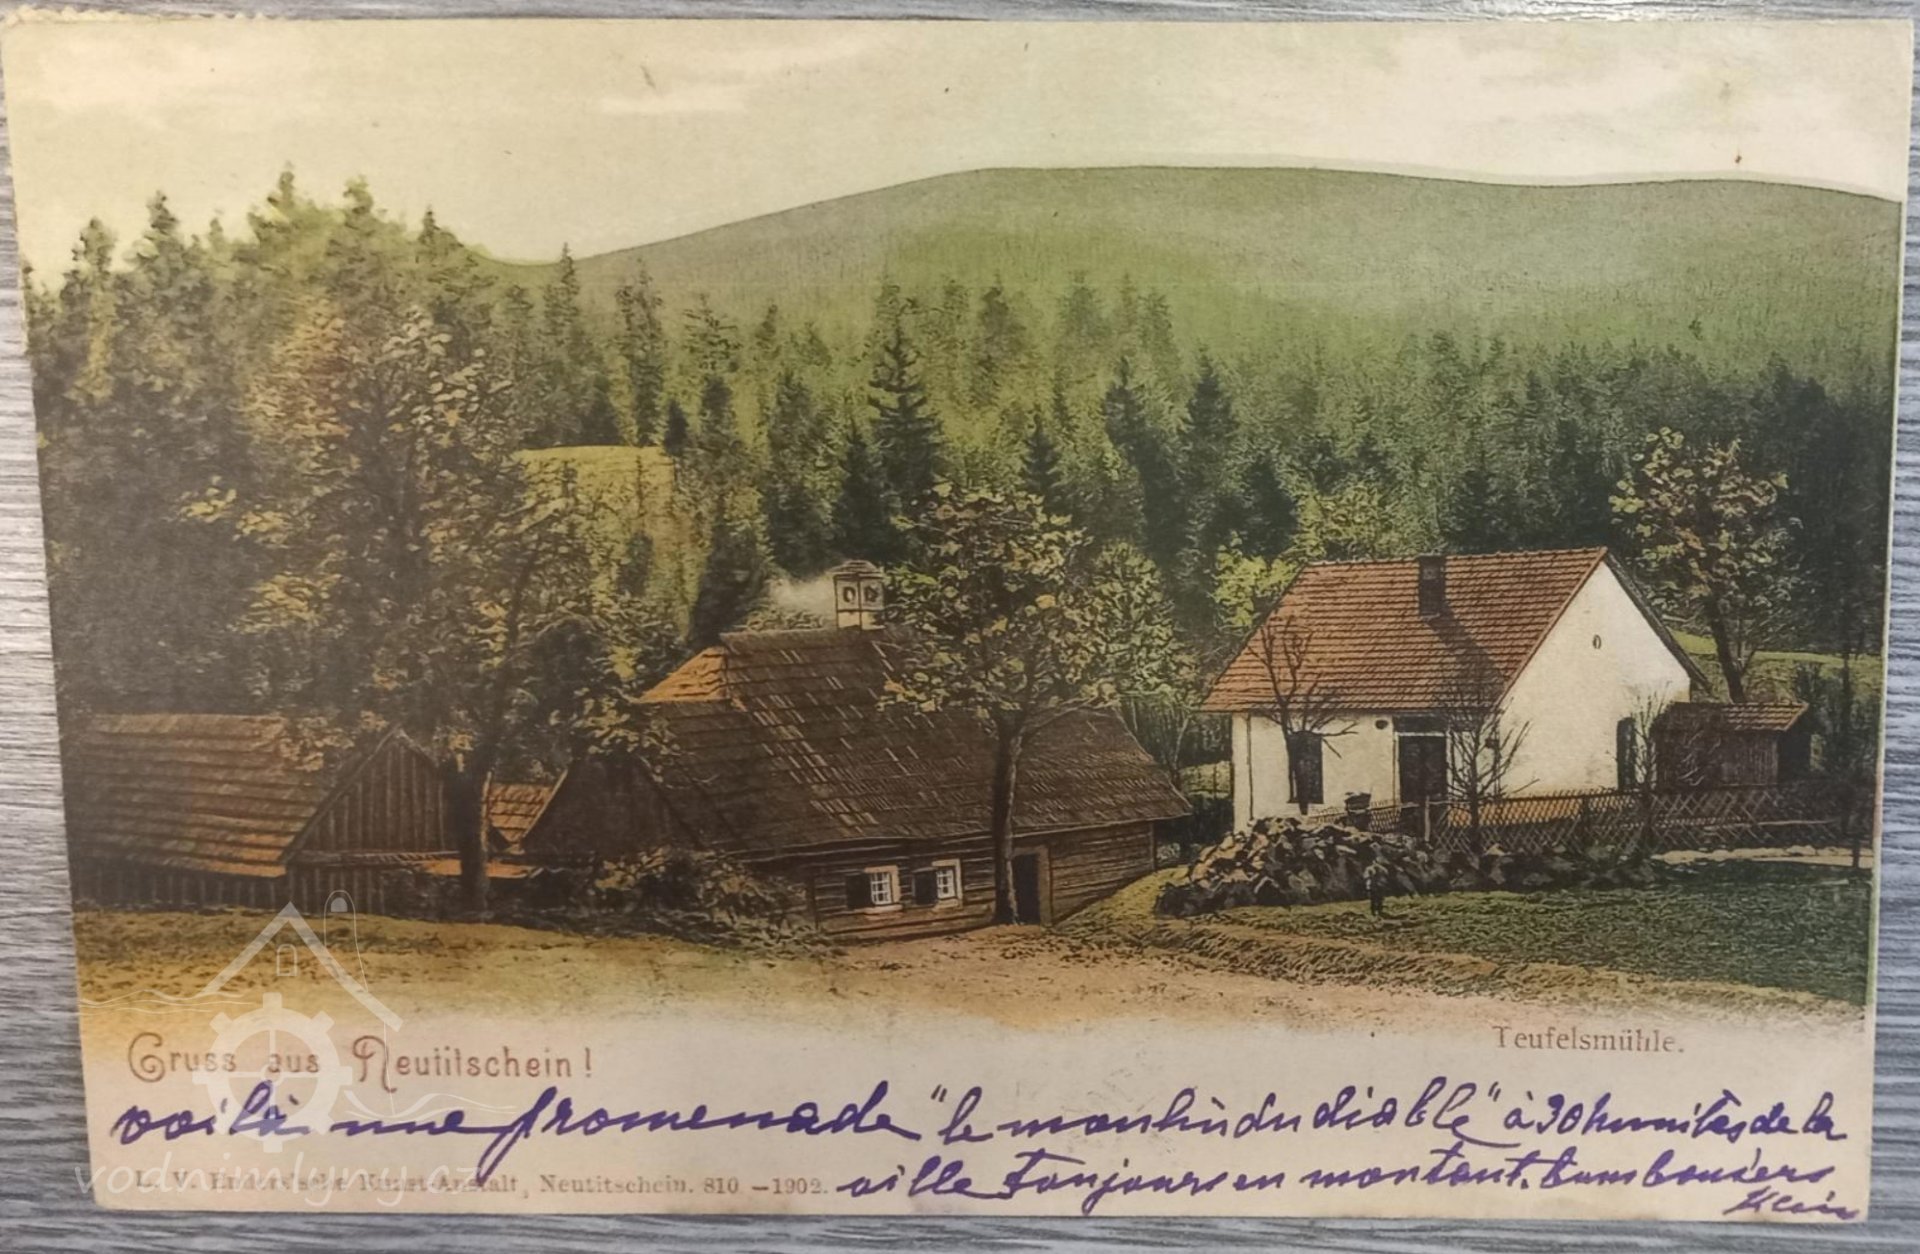 Teufelsmühle.
Gruss aus Neutitschein!
voilà une promenade "le moulin du diable" à 30 minutes de la
L. V. Enders'sche Kunst-Anstalt, Neutitschein. 810 – 1902.
ville toujours en montant. bons baisers
Klein
vodnimlyny.cz